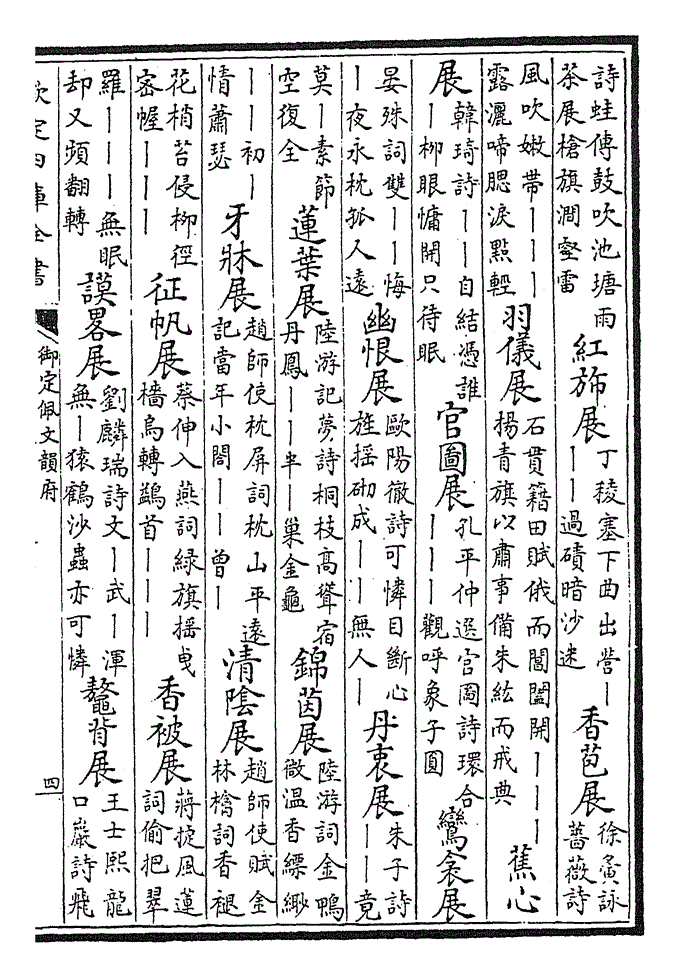 詩蛙傳鼓吹池塘雨茶展槍旗澗壑雷 紅斾展 丁稜塞下曲出營丨丨丨過磧暗沙迷 香苞展 徐夤詠薔薇詩
風吹嫩帶丨丨丨露灑啼腮淚點輕 羽儀展 石貫籍田賦俄而閶闔開丨丨丨揚青旗以肅事備朱紘而戒典 蕉心
展 韓琦詩丨丨自結憑誰丨柳眼慵開只待眠 官圖展 孔平仲選官圖詩環合丨丨丨觀呼象子圓 鸞衾展
晏殊詞雙丨丨悔丨夜永枕孤人遠 幽恨展 歐陽徹詩可憐目斷心旌搖砌成丨丨無人丨 丹衷展 朱子詩丨丨竟
莫丨素節空復全 蓮葉展 陸游記夢詩桐枝高聳宿丹鳳丨丨半丨巢金龜 錦茵展 陸游詞金鴨微温香縹緲
丨丨初丨情蕭瑟 牙牀展 趙師使枕屏詞枕山平遠記當年小閤丨丨曾丨 清陰展 趙師使賦金林檎詞香褪
花梢苔侵柳徑密幄丨丨丨 征帆展 蔡伸入燕詞綠旗搖曵檣烏轉鷁首丨丨丨 香被展 蔣捷風蓮詞偷把翠
羅丨丨丨無眠却又頻翻轉 謨畧展 劉麟瑞詩文丨武丨渾無丨猿鶴沙蟲亦可憐 鼇背展 王士熙龍口巖詩飛
欽定四庫全書 御定佩文韻府 四